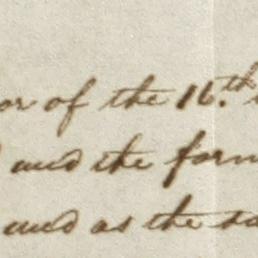 or of the 16.th
and the form
and as the sa